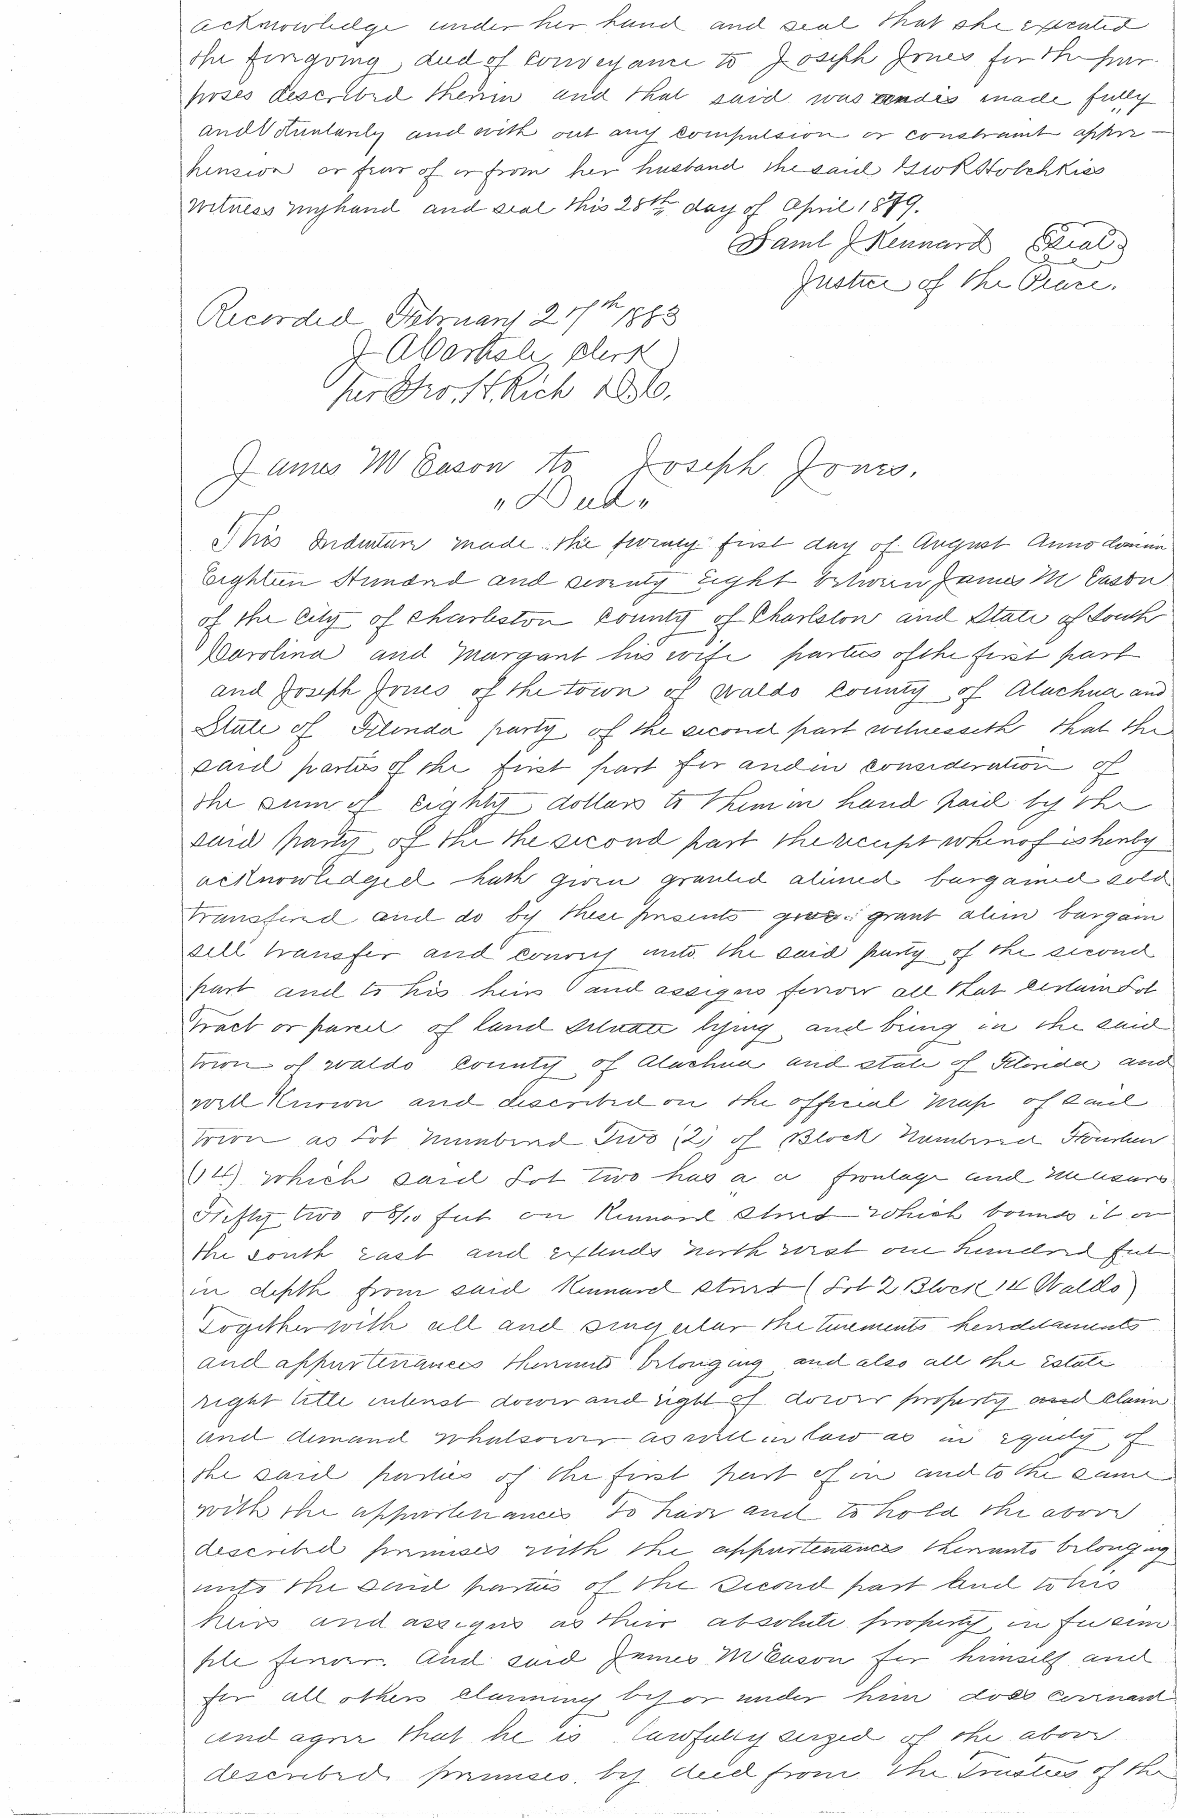 acknowledge under her hand and seal that she executed
the forgoing deed of conveyance to Joseph Jones for the pur-
poses described therein and that said was and is made fully
and Voluntarily and with out any compulsion or constraint appre-
hension or fear of or from her husband the said Geo R Hotchkiss
Witness my hand and seal this 28th day of April 1879.
Saml J Kennard Seal
Justice of the Peace.
Recorded February 27th 1883
J A Carlisle Clerk
per Geo. H. Rich D.C.
James M Eason to Joseph Jones.
"Deed"
This Indenture made the twenty first day of August Anno domini
Eighteen Hundred and seventy Eight between James M Eason
of the City of Charleston County of Charlston and State of South
Carolina and Margaret his wife parties of the first part
and Joseph Jones of the town of Waldo County of Alachua and
State of Florida party of the second part witnesseth that the
said parties of the first part for and in consideration of
the sum of Eighty dollars to them in hand paid by the
said party of the the second part the receipt whereof is hereby
acknowledged hath given granted aliened bargained sold
transferred and do by these presents give grant alien bargain
sell transfer and convey unto the said party of the second
part and to his heirs and assigns forever all that certain Lot
Tract or parcel of land situate lying and being in the said
town of Waldo County of Alachua and state of Florida and
well Known and described on the official Map of said
town as Lot Numbered Two (2) of Block Numbered Fourteen
(14) which said Lot two has a a frontage and Measure
Fifty two & 8/10 feet on Kennard Street which bounds it on
the south east and extends north west one hundred feet
in depth from said Kennard Street (Lot 2 Block 14 Waldo)
Together with all and singular the tenements hereditaments
and appurtenances thereunto belonging and also all the Estate
right title interest dower and right of dower property and claim
and demand whatsoever as well in law as in equity of
the said parties of the first part of in and to the same
with the appurtenances To have and to hold the above
described premises with the appurtenances thereunto belonging
unto the said parties of the second part and to his
heirs and assigns as their absolute property in fee sim
ple forever. And said James M Eason for himself and
for all others claiming by or under him does covenant
and agree that he is lawfully seized of the above
described premises by deed from the Trustees of the